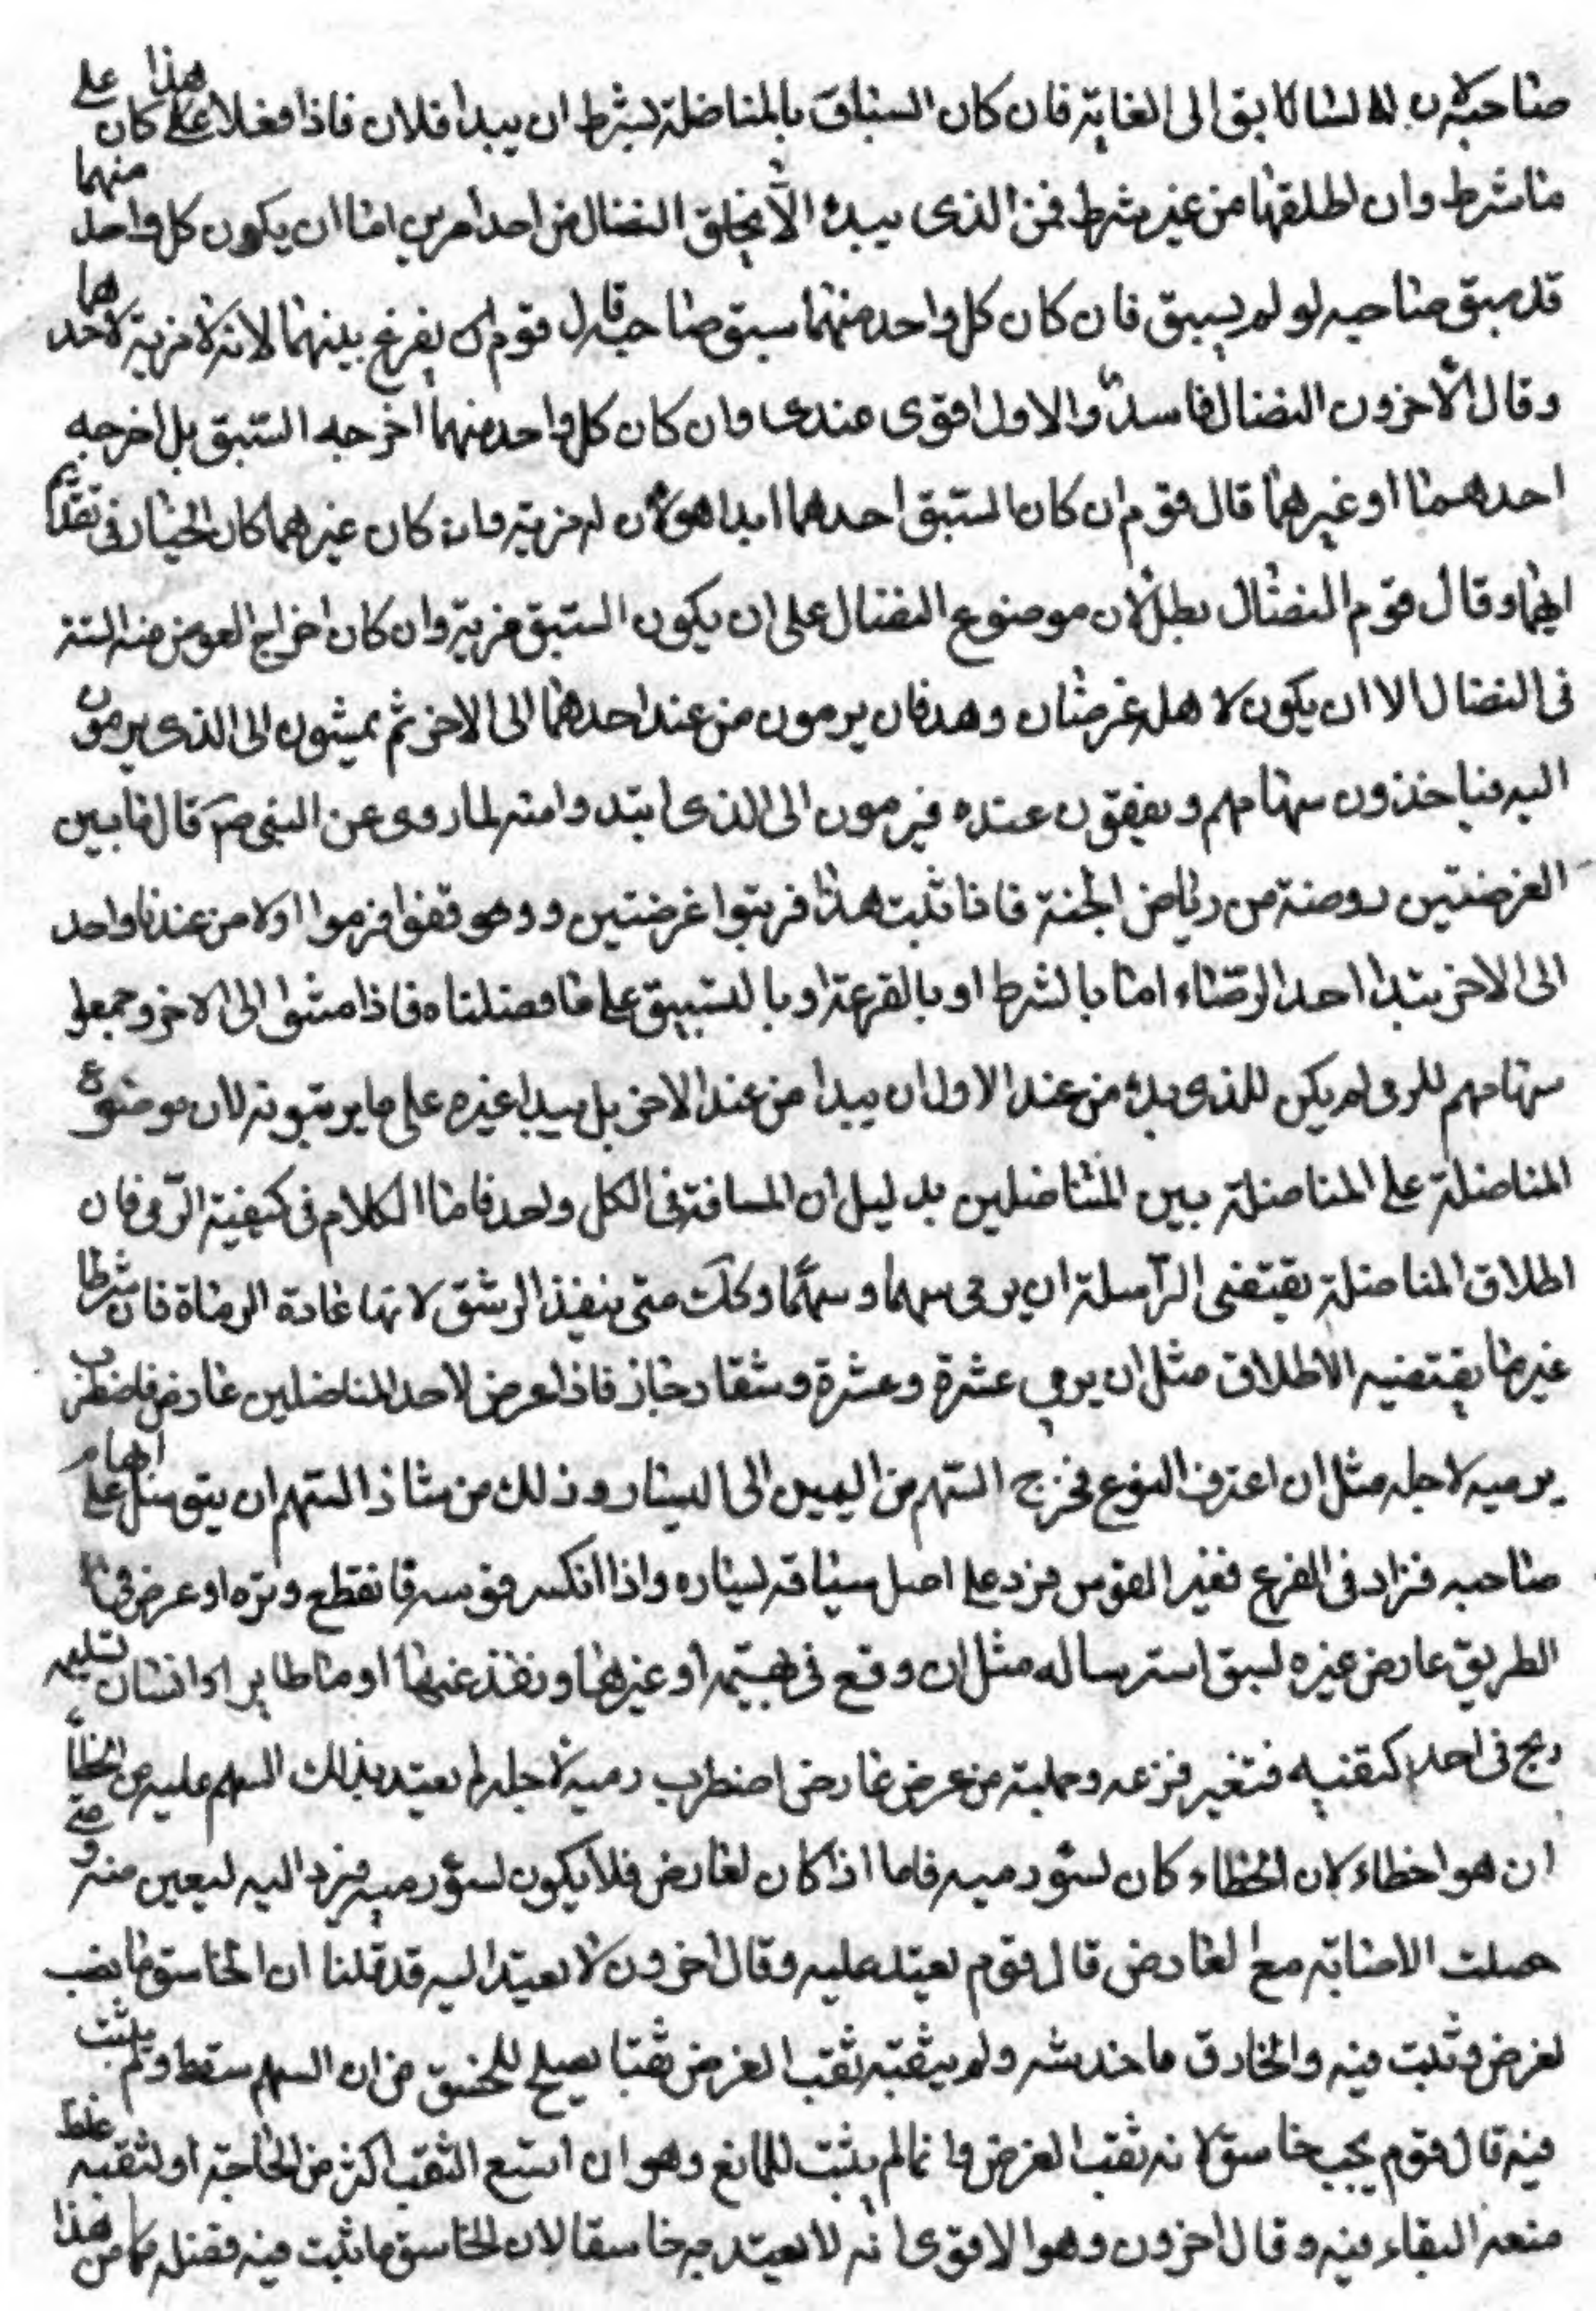 صاحبه لان السابق الى الغاية فان كان السباق بالمناضلة بشرط ان يبدا فلان فاذا فعلا هذا كان على
ما شرط وان اطلقها من غير شرط فمن الذى يبدء الا يخلق النضال من احد امرين اما ان يكون كل واحد منهما
قد سبق صاحبه او لم يسبق فان كان كل واحد منهما سبق صاحبه قال قوم ان يفرغ بينهما لانه لا مزية لاحدهما
وقال الآخرون النضال فاسد والاول اقوى عندى وان كان كل واحد منهما اخرجه السبق بل اخرجه
احدهما او غيرهما قال قوم ان كان السبق احدهما ابدا هو لان له مزية وان كان غيرهما كان الخيار فى تقديم
ايهما وقال قوم النضال بطل لان موضوع النضال على ان يكون السبق مزية وان كان اخراج العوض منه السنة
فى النضال الا ان يكون لاهله غرضان وهدفان يرمون من عند احدهما الى الاخر ثم يمشون الى الذى يرمون
اليه فياخذون سهامهم ويقفون عنده فيرمون الى الذى ابتدوا منه لما روى عن النبى ص قال ما بين
الغرضتين روضة من رياض الجنة فاذا ثبت هذا فرتبوا غرضتين ووقفوا فرموا اولا من عند واحد
الى الاخر يبتدا احد الرماة اما بالشرط او بالقرعة او بالتسبيق على ما فصلناه فاذا مشوا الى الاخر وجمعوا
سهامهم للرمى لم يكن للذى بدء من عند الاول ان يبدا من عند الاخر بل يبدا غيره على ما يرتبونه لان موضوع
المناضلة على المناضلة بين المتناضلين بدليل ان المسافة فى الكل واحد فاما الكلام فى كيفية الرمى فان
اطلاق المناضلة يقتضى المراسلة ان يرمى سهما وسهما وكك متى ينفذ الرشق لانها عادة الرماة فان شرطا
غير ما يقتضيه الاطلاق مثل ان يرمى عشرة وعشرة وشقا جاز فاذا عرض لاحد المناضلين عارض فاضطرب
يرميه لاجله مثل ان اعترف النوع فخرج السهم من اليمين الى اليسار وذلك من شاذ السهم ان يتوسل على ابهام
صاحبه فزاد فى الفرع فغير القوس فزد على اصل سياقه ليساره واذا انكسر قوسه فانقطع وتره او عرض فى
الطريق عارض غيره لسبق استرساله مثل ان وقع فى بهيمة او غيرها ونفذ عنها او ما طاير او انسان
ريح فى احد كتفيه فتغير فزعه وجملته من عرض عارض اضطرب رميه لاجله لم يعتد بذلك السهم عليه من الخطأ
ان هو اخطاء لان الخطاء كان لسوء رميه فاما اذا كان لعارض فلا يكون لسوء رميه فيرد اليه ليعين منه ومتى
حصلت الاصابة مع العارض قال قوم يعتد عليه وقال اخرون لا يعتد اليه قد قلنا ان الخاسق ما يصب
لغرض وثبت فيه والخارق ما خدشه ولم يثقبه ثقب الغرض ثقبا يصلح للخسق من ان السهم سقط ولم يثبت
فيه قال قوم يجب خاسق لانه ثقب الغرض وانما لم يثبت للمانع وهو ان اتسع الثقب اكثر من الحاجة او لثقبه غلظ
منعه البقاء فيه وقال اخرون وهو الاقوى انه لا يعتد به خاسقا لان الخاسق ما ثبت فيه فقتله كما من هذا